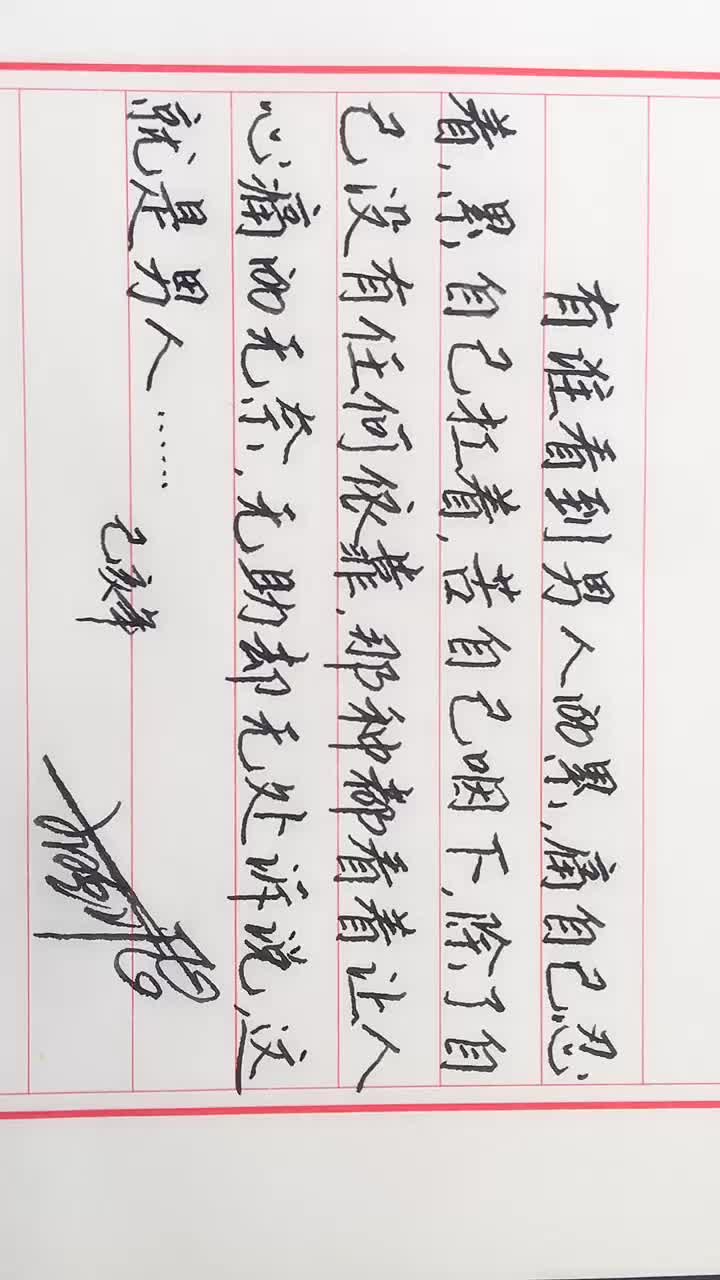 有谁看到男人的累,痛自己忍
着,累自己扛着,苦自己咽下,除了自
己没有任何依靠,那种都看着让人
心痛的无奈,无助却无处诉说,这
就是男人……
己亥年